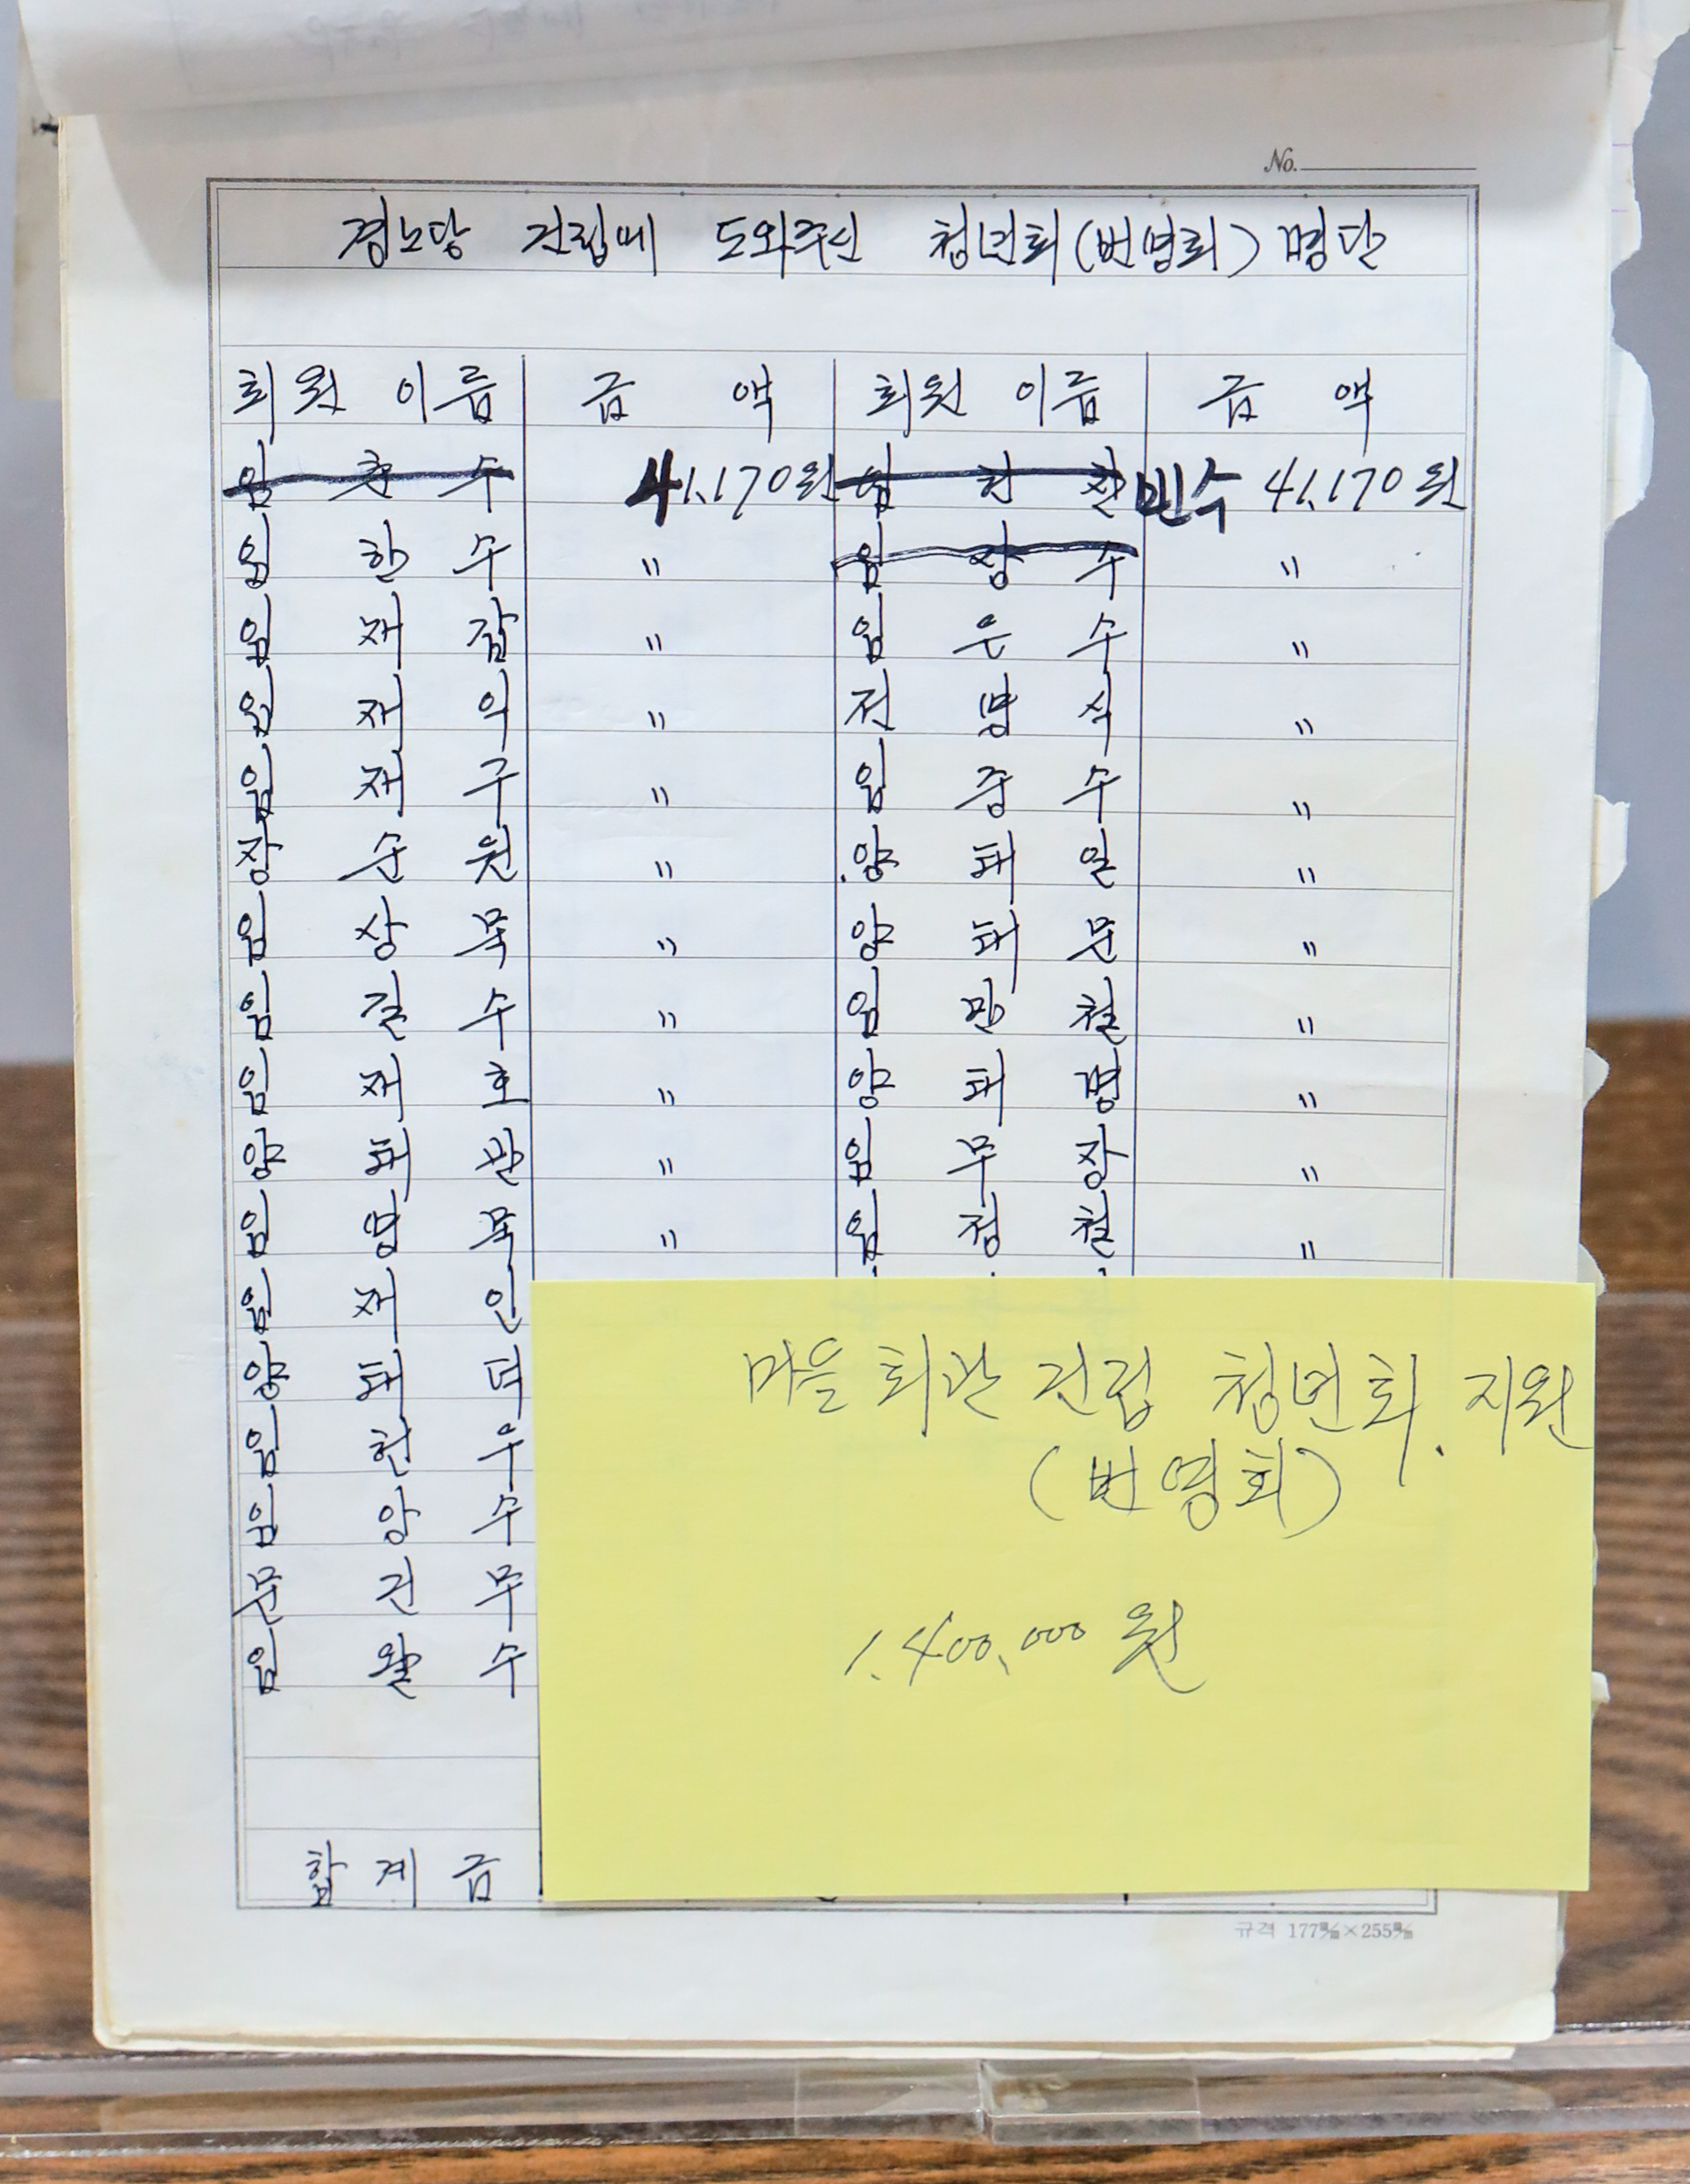 No.
경노당 건립때 도와주신 청년회(번영회) 명단
회원 이름 금 액 회원 이름 금 액
임 수 41.170원 임 민수 41.170원
임 한 수 〃 임 상 수 〃
임 재 갑 〃 임 은 수 〃
임 재 익 〃 전 병 식 〃
임 재 구 〃 임 중 수 〃
장 순 원 〃 양 태 일 〃
임 상 묵 〃 양 태 문 〃
임 길 수 〃 임 만 철 〃
임 재 호 〃 양 태 경 〃
양 태 관 〃 임 무 장 〃
임 병 묵 〃 임 정 철 〃
임 재 인
양 태 덕
임 헌 우
임 양 수
문 건 무
임 왈 수
합 계 금
마을회관 건립 청년회. 지원
(번영회)
1.400.000원
규격 177㎜×255㎜